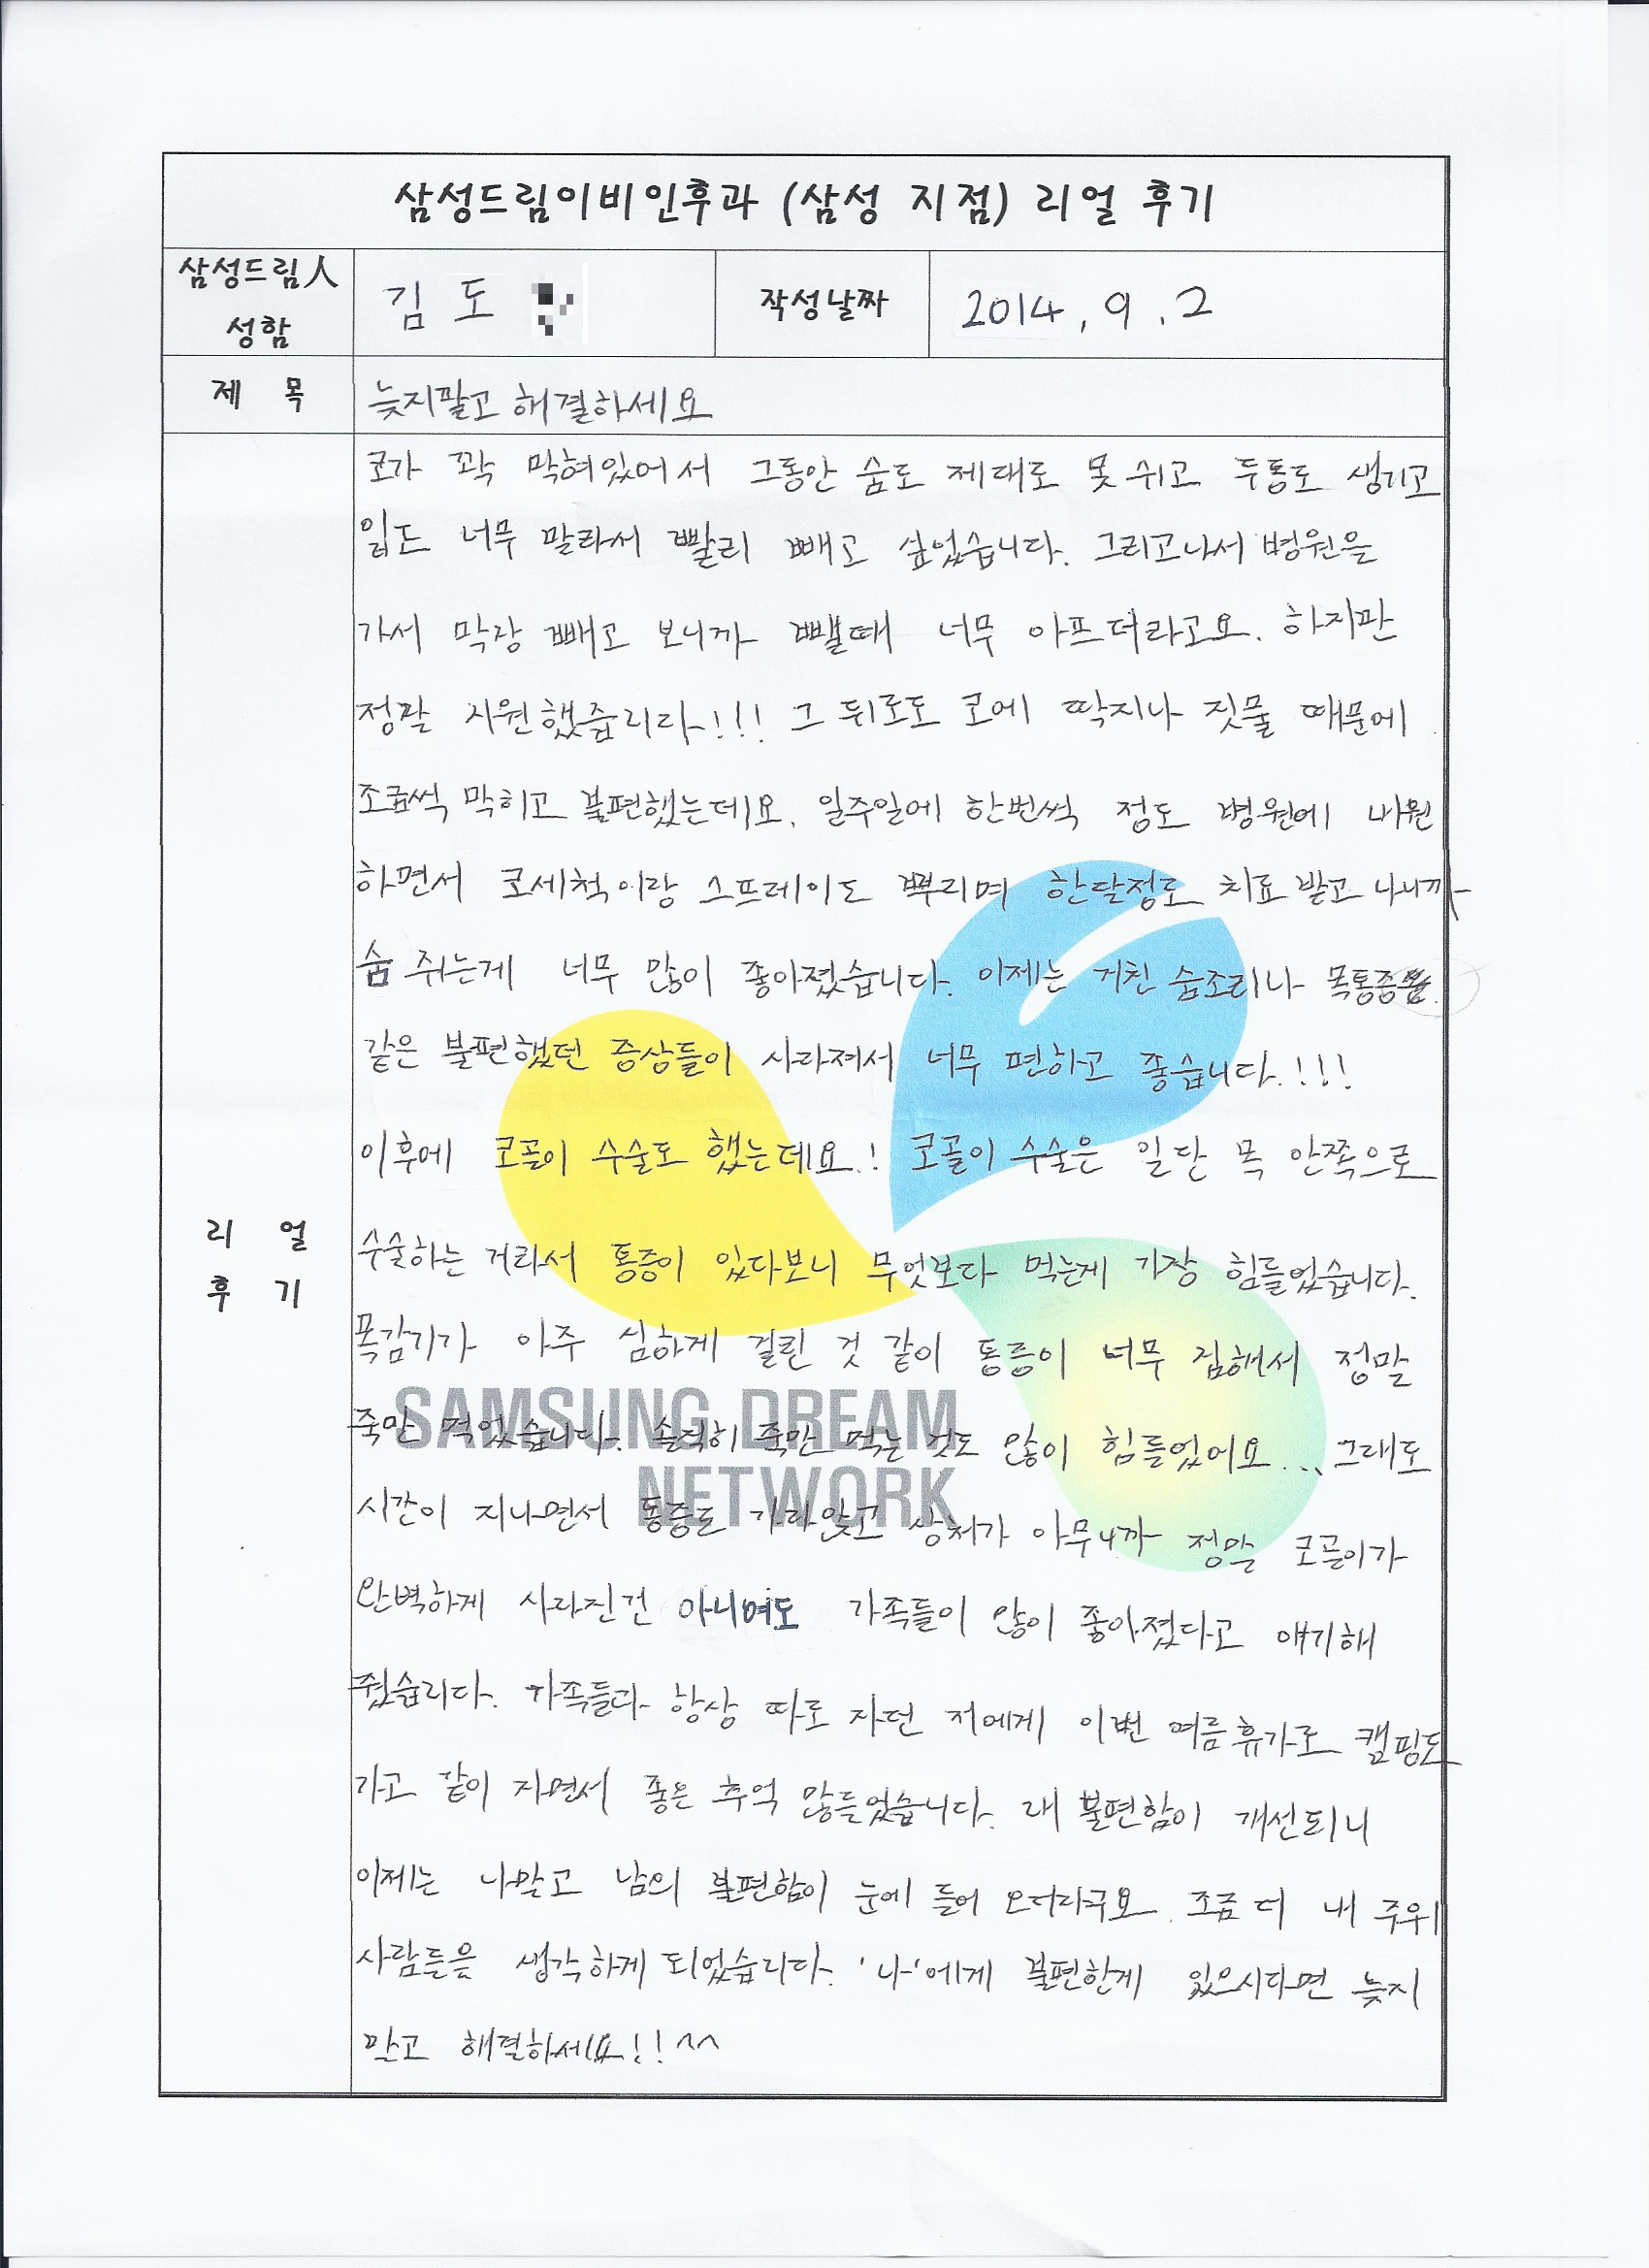 삼성드림이비인후과 (삼성 지점) 리얼 후기
삼성드림人 성함 김도 작성날짜 2014. 9. 2
제 목 늦지말고 해결하세요
리 얼 후 기
코가 꽉 막혀있어서 그동안 숨도 제대로 못 쉬고 두통도 생기고
입도 너무 말라서 빨리 빼고 싶었습니다. 그리고나서 병원을
가서 막상 빼고 보니까 뺄때 너무 아프더라고요. 하지만
정말 시원했습니다!!! 그 뒤로도 코에 딱지나 짓물 때문에
조금씩 막히고 불편했는데요. 일주일에 한번씩 정도 병원에 내원
하면서 코세척이랑 스프레이도 뿌리며 한달정도 치료 받고 나니까
숨 쉬는게 너무 많이 좋아졌습니다. 이제는 거친 숨소리나 목통증
같은 불편했던 증상들이 사라져서 너무 편하고 좋습니다.!!!
이후에 코골이 수술도 했는데요.! 코골이 수술은 일단 목 안쪽으로
수술하는 거라서 통증이 있다보니 무엇보다 먹는게 가장 힘들었습니다.
목감기가 아주 심하게 걸린 것 같이 통증이 너무 심해서 정말
죽만 먹었습니다. 솔직히 죽만 먹는 것도 많이 힘들었어요... 그래도
시간이 지나면서 통증도 가라앉고 상처가 아무니까 정말 코골이가
완벽하게 사라진건 아니여도 가족들이 많이 좋아졌다고 얘기해
줬습니다. 가족들과 항상 따로 자던 저에게 이번 여름휴가로 캠핑도
가고 같이 자면서 좋은 추억 많들었습니다. 내 불편함이 개선되니
이제는 나말고 남의 불편함이 눈에 들어 오더라구요. 조금 더 내 주위
사람들을 생각하게 되었습니다. '나'에게 불편한게 있으시다면 늦지
말고 해결하세요!! ^^
SAMSUNG DREAM
NETWORK